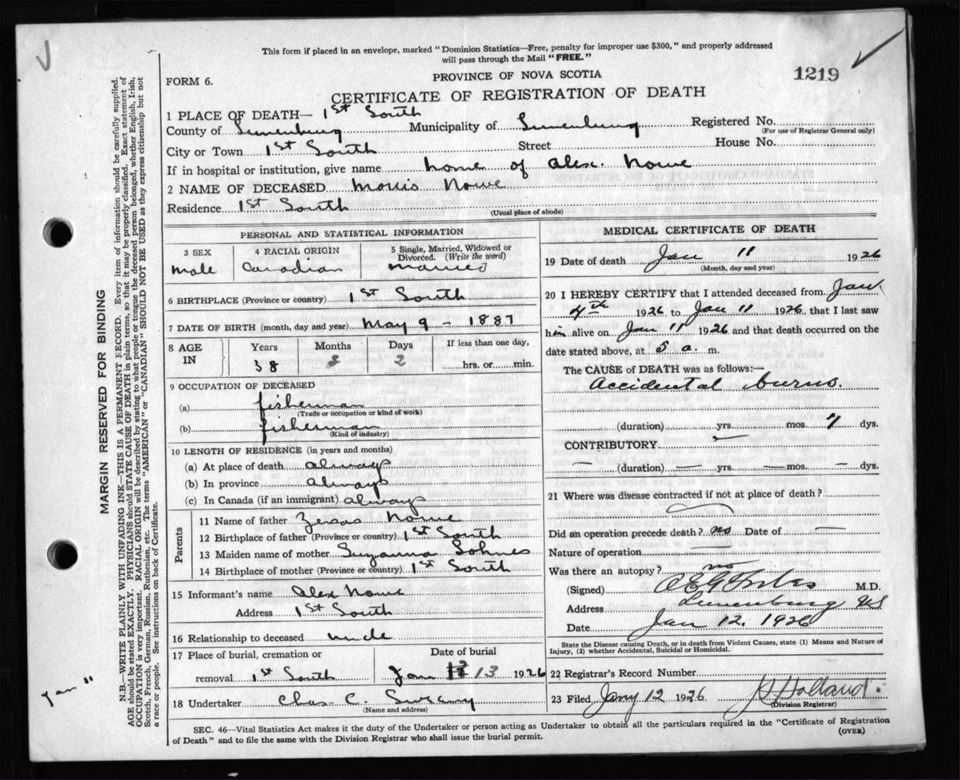 This form if placed in an envelope, marked "Dominion Statistics—Free, penalty for improper use $300," and properly addressed
will pass through the Mail "FREE."
FORM 6.
PROVINCE OF NOVA SCOTIA
1219
CERTIFICATE OF REGISTRATION OF DEATH
1 PLACE OF DEATH— 1st South
County of Lunenburg Municipality of Lunenburg Registered No.
(For use of Registrar General only)
City or Town 1st South Street House No.
If in hospital or institution, give name home of Alex. Nowe
2 NAME OF DECEASED Morris Nowe
Residence 1st South
(Usual place of abode)
PERSONAL AND STATISTICAL INFORMATION
3 SEX
male
4 RACIAL ORIGIN
Canadian
5 Single, Married, Widowed or
Divorced. (Write the word)
married
6 BIRTHPLACE (Province or country) 1st South
7 DATE OF BIRTH (month, day and year) May 9 - 1887
8 AGE IN
Years Months Days If less than one day,
38 8 2 hrs. or min.
9 OCCUPATION OF DECEASED
(a) fisherman
(Trade or occupation or kind of work)
(b) fisherman
(Kind of industry)
10 LENGTH OF RESIDENCE (in years and months)
(a) At place of death always
(b) In province always
(c) In Canada (if an immigrant) always
Parents
11 Name of father Nowe
12 Birthplace of father (Province or country) 1st South
13 Maiden name of mother Suzanna Sohnes
14 Birthplace of mother (Province or country) 1st South
15 Informant's name Alex Nowe
Address 1st South
16 Relationship to deceased uncle
17 Place of burial, cremation or Date of burial
removal 1st South Jan 13 1926
18 Undertaker Chas. C.
(Name and address)
MEDICAL CERTIFICATE OF DEATH
19 Date of death Jan 11 1926
(Month, day and year)
20 I HEREBY CERTIFY that I attended deceased from Jan
4th 1926 to Jan 11 1926 that I last saw
him alive on Jan 11 1926 and that death occurred on
date stated above, at 5 a. m.
The CAUSE of DEATH was as follows:—
Accidental burns.
(duration) yrs. mos. 7 dys.
CONTRIBUTORY
— (duration) — yrs. — mos. — dys.
21 Where was disease contracted if not at place of death?
Did an operation precede death? no Date of —
Nature of operation —
Was there an autopsy? no
(Signed) M.D.
Address Lunenburg NS
Date Jan 12. 1926
State the Disease causing Death, or in death from Violent Causes, state (1) Means and Nature of
Injury, (2) whether Accidental, Suicidal or Homicidal.
22 Registrar's Record Number
23 Filed Jany 12 1926 Holland.
(Division Registrar)
SEC. 46—Vital Statistics Act makes it the duty of the Undertaker or person acting as Undertaker to obtain all the particulars required in the "Certificate of Registration
of Death" and to file the same with the Division Registrar who shall issue the burial permit.
(OVER)
MARGIN RESERVED FOR BINDING
N.B.—WRITE PLAINLY WITH UNFADING INK—THIS IS A PERMANENT RECORD. Every item of information should be carefully supplied.
AGE should be stated EXACTLY. PHYSICIANS should STATE CAUSE OF DEATH in plain terms, so that it may be properly classified. Exact statement of
OCCUPATION is very important. RACIAL ORIGIN will be described by stating to what people or tongue the deceased person belonged, whether English, Irish,
Scotch, French, German, Russian, Ruthenian, etc. The terms "AMERICAN" or "CANADIAN" SHOULD NOT BE USED as they express citizenship but not
a race or people. See instructions on back of Certificate.